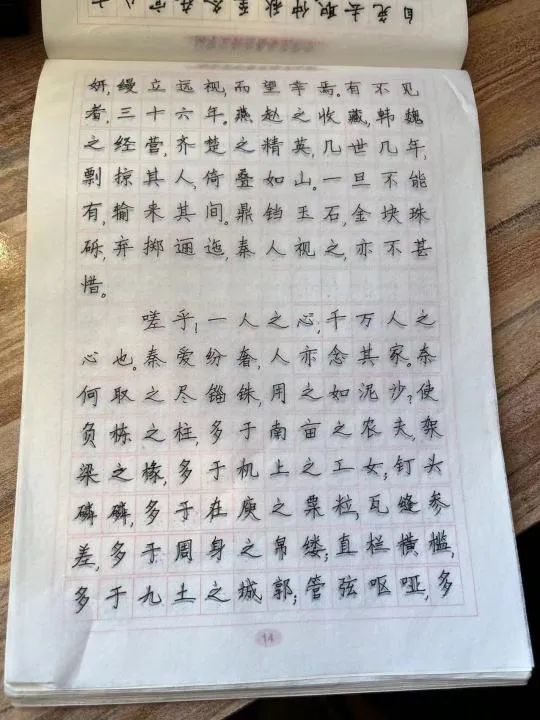 妍,缦立远视,而望幸焉。有不见
者,三十六年。燕赵之收藏,韩魏
之经营,齐楚之精英,几世几年,
剽掠其人,倚叠如山。一旦不能
有,输来其间。鼎铛玉石,金块珠
砾,弃掷逦迤,秦人视之,亦不甚
惜。
嗟乎!一人之心,千万人之
心也。秦爱纷奢,人亦念其家。奈
何取之尽锱铢,用之如泥沙?使
负栋之柱,多于南亩之农夫;架
梁之椽,多于机上之工女;钉头
磷磷,多于在庾之粟粒;瓦缝参
差,多于周身之帛缕;直栏横槛,
多于九土之城郭;管弦呕哑,多
14